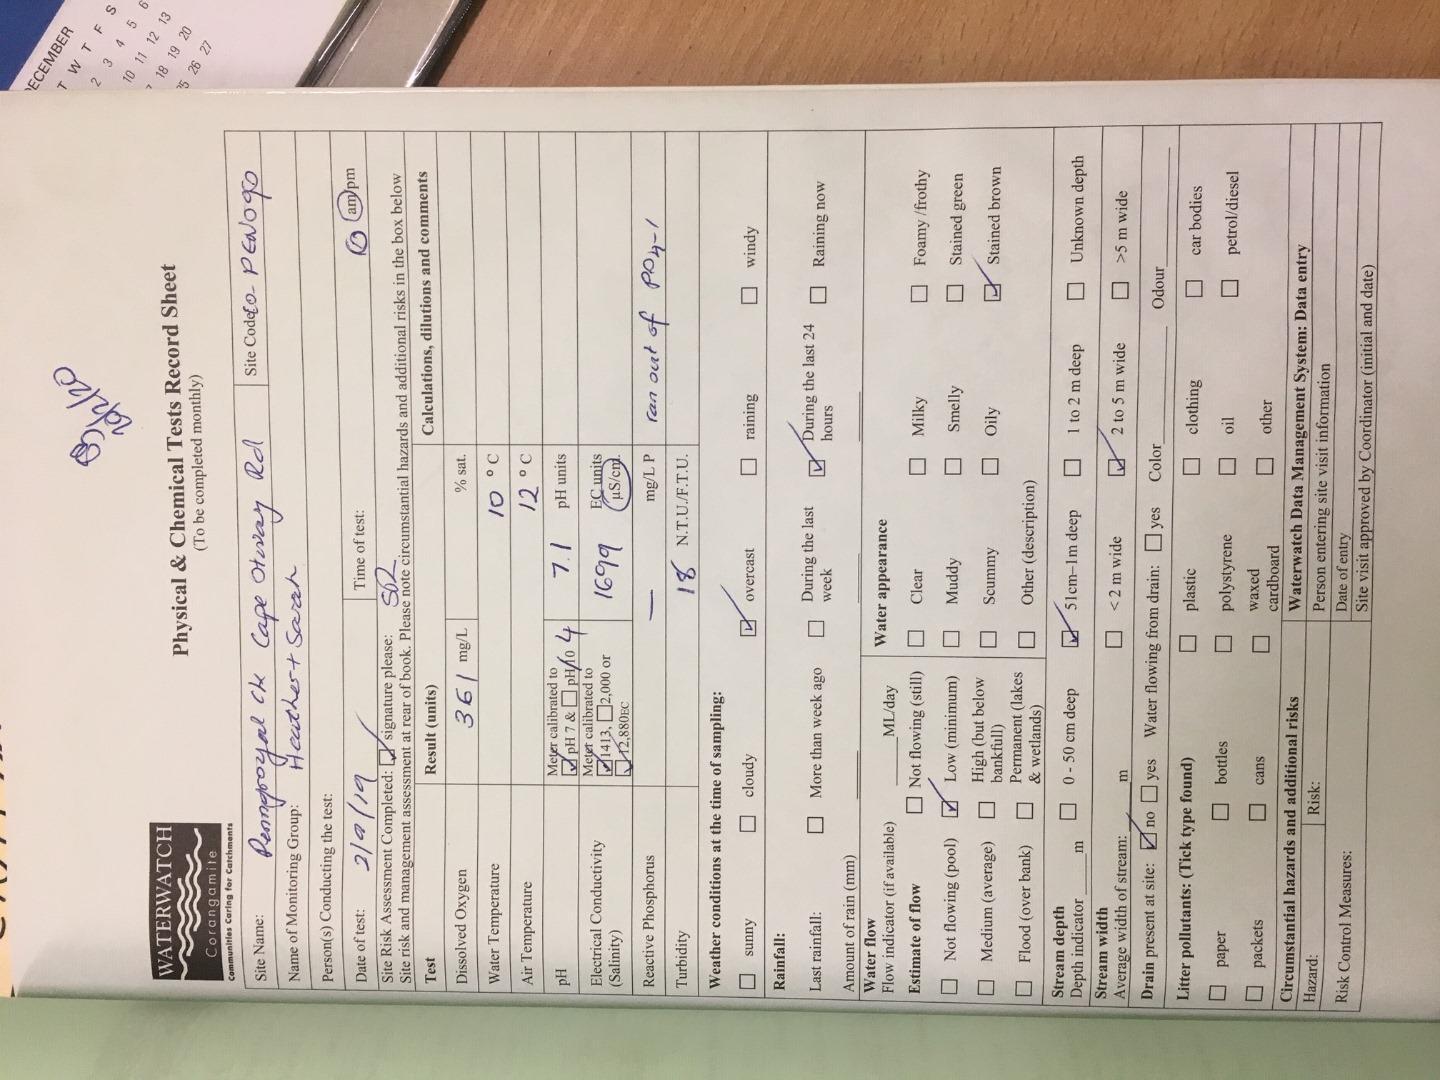 DECEMBER
T W T F S
2 3 4 5 6
10 11 12 13
18 19 20
25 26 27
WATERWATCH
Corangamite
Communities Caring for Catchments
Physical & Chemical Tests Record Sheet
(To be completed monthly)
Site Name: Pennyroyal Ck Cape Otway Rd Site Code CO-PEN090
Name of Monitoring Group: Heather + Sarah
Person(s) Conducting the test:
Date of test: 2/9/19 Time of test: am/pm
Site Risk Assessment Completed: signature please:
Site risk and management assessment at rear of book. Please note circumstantial hazards and additional risks in the box below
Test Result (units) Calculations, dilutions and comments
Dissolved Oxygen 361 mg/L % sat.
Water Temperature 10 °C
Air Temperature 12 °C
pH Meter calibrated to pH 7 & pH 10 4 7.1 pH units
Electrical Conductivity (Salinity) Meter calibrated to 1413, 2,000 or 12,880EC 1699 EC units µS/cm.
Reactive Phosphorus — mg/L P ran out of PO4-1
Turbidity 18 N.T.U./F.T.U.
Weather conditions at the time of sampling:
sunny cloudy overcast raining windy
Rainfall:
Last rainfall: More than week ago During the last week During the last 24 hours Raining now
Amount of rain (mm)
Water flow
Flow indicator (if available) ML/day
Estimate of flow Not flowing (still)
Not flowing (pool) Low (minimum)
Medium (average) High (but below bankfull)
Flood (over bank) Permanent (lakes & wetlands)
Water appearance
Clear Milky Foamy /frothy
Muddy Smelly Stained green
Scummy Oily Stained brown
Other (description)
Stream depth
Depth indicator m 0 - 50 cm deep 51cm–1m deep 1 to 2 m deep Unknown depth
Stream width
Average width of stream: m < 2 m wide 2 to 5 m wide >5 m wide
Drain present at site: no yes Water flowing from drain: yes Color Odour
Litter pollutants: (Tick type found)
paper bottles plastic clothing car bodies
packets cans polystyrene oil petrol/diesel
waxed cardboard other
Circumstantial hazards and additional risks
Hazard: Risk:
Risk Control Measures:
Waterwatch Data Management System: Data entry
Person entering site visit information
Date of entry
Site visit approved by Coordinator (initial and date)